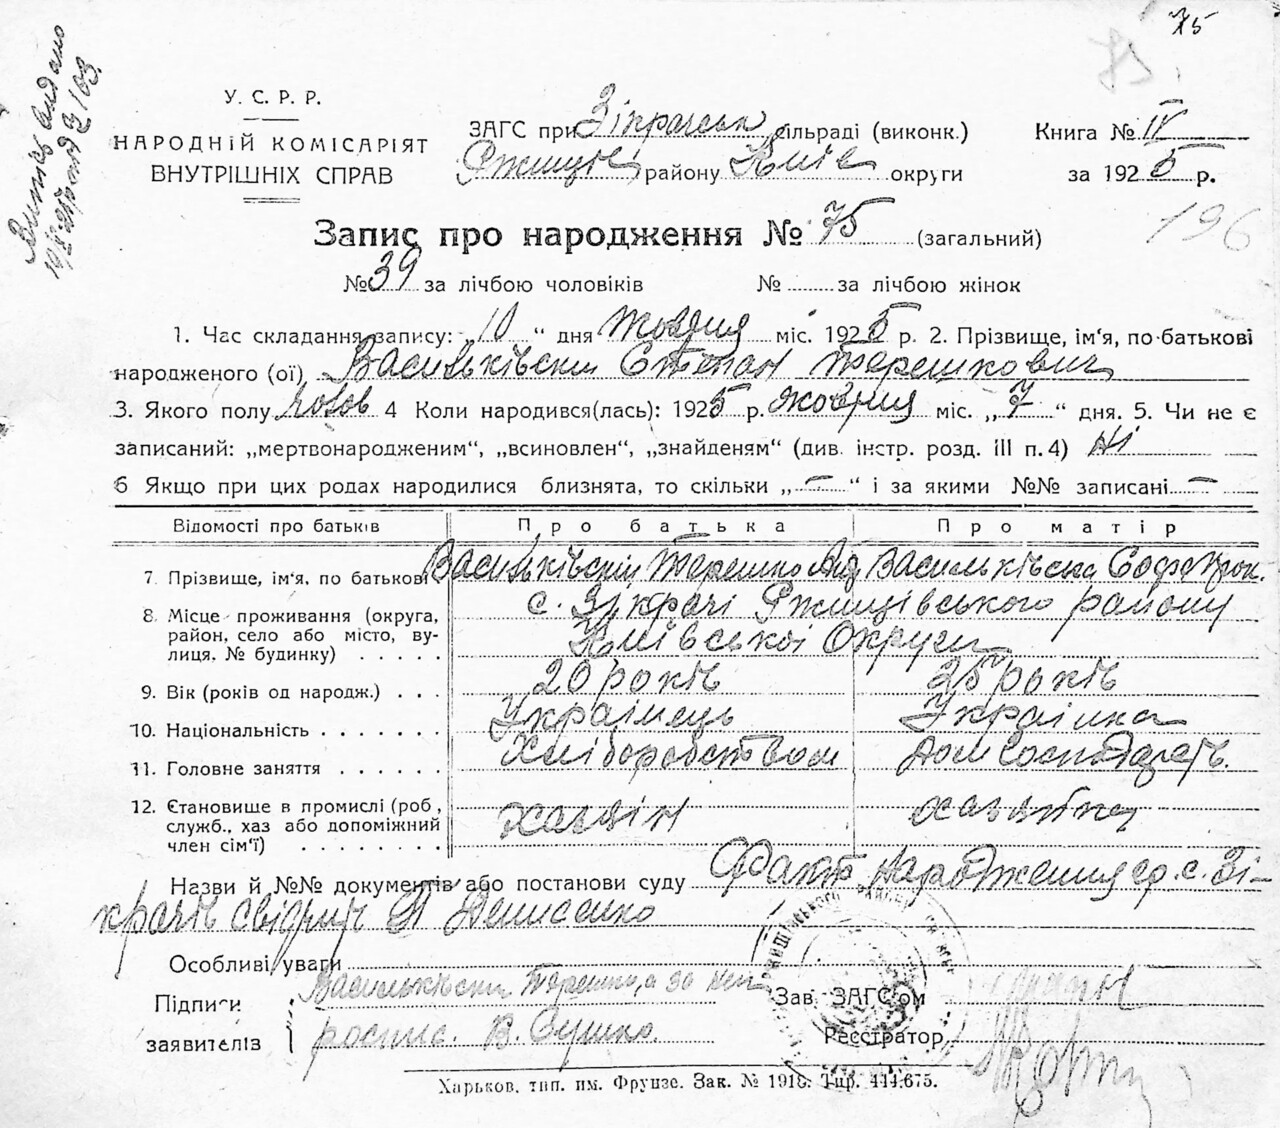 75
75
Випись видано
У. С. Р. Р.
НАРОДНІЙ КОМІСАРІЯТ
ВНУТРІШНІХ СПРАВ
ЗАГС при Зікрачськ сільраді (виконк.)
Ржищів району Київ округи
Книга № IV
за 1925 р.
196
Запис про народження № 75 (загальний)
№ 39 за лічбою чоловіків № ........ за лічбою жінок
1. Час складання запису: „10“ дня Жовтня міс. 1925 р. 2. Прізвище, ім'я, по-батькові
народженого (ої) Васильківский Степан Терешкович
3. Якого полу чолов 4 Коли народився(лась): 1925 р. жовтня міс. „7“ дня. 5. Чи не є
записаний: „мертвонародженим“, „всиновлен“, „знайденям“ (див. інстр. розд. III п. 4) Ні
6 Якщо при цих родах народилися близнята, то скільки „—“ і за якими №№ записані —
Відомості про батьків Про батька Про матір
7. Прізвище, ім'я, по батькові Васильківский Терешко Анд Васильківска Софя Прок.
8. Місце проживання (округа, район, село або місто, вулиця, № будинку) . . . . . с. Зікрачі Ржищівського району
Київської Округи
9. Вік (років од народж.) . . . 20 років 25 років
10. Національність . . . . . . . Українець Українка
11. Головне заняття . . . . . . Хліборобством Дом господарств.
12. Становище в промислі (роб., служб., хаз або допоміжний член сім'ї) . . . . . . . . хазяін хазяйка
Назви й №№ документів або постанови суду Факт народження гр. с. Зі-
крачів свідчить Денисенко
Особливі уваги
Підписи
заявителів
Васильківский Терешко, а за
роспис. В. Сушко.
Зав. ЗАГС'ом
Реєстратор
Харьков, тип. им. Фрунзе. Зак. № 1918. Тир. 444.675.